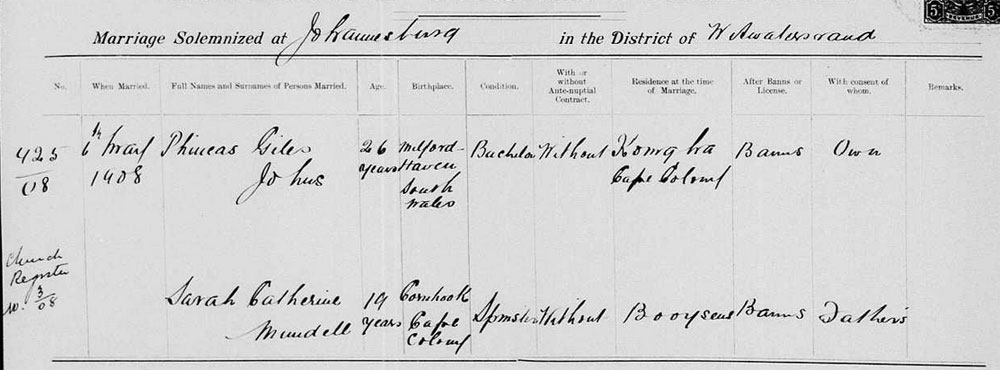 5 REVENUE 5
Marriage Solemnized at Johannesburg in the District of Witwatersrand
No. When Married. Full Names and Surnames of Persons Married. Age. Birthplace. Condition. With or without Ante-nuptial Contract. Residence at the time of Marriage. After Banns or License. With consent of whom. Remarks.
425/08 6th May 1908 Phineas Giles Johns 26 years Milford Haven South Wales Bachelor Without Komgha Cape Colony Banns Own
Church Register No. 3/08
Sarah Catherine Mundell 19 years Cornhook Cape Colony Spinster Without Booysens Banns Father's